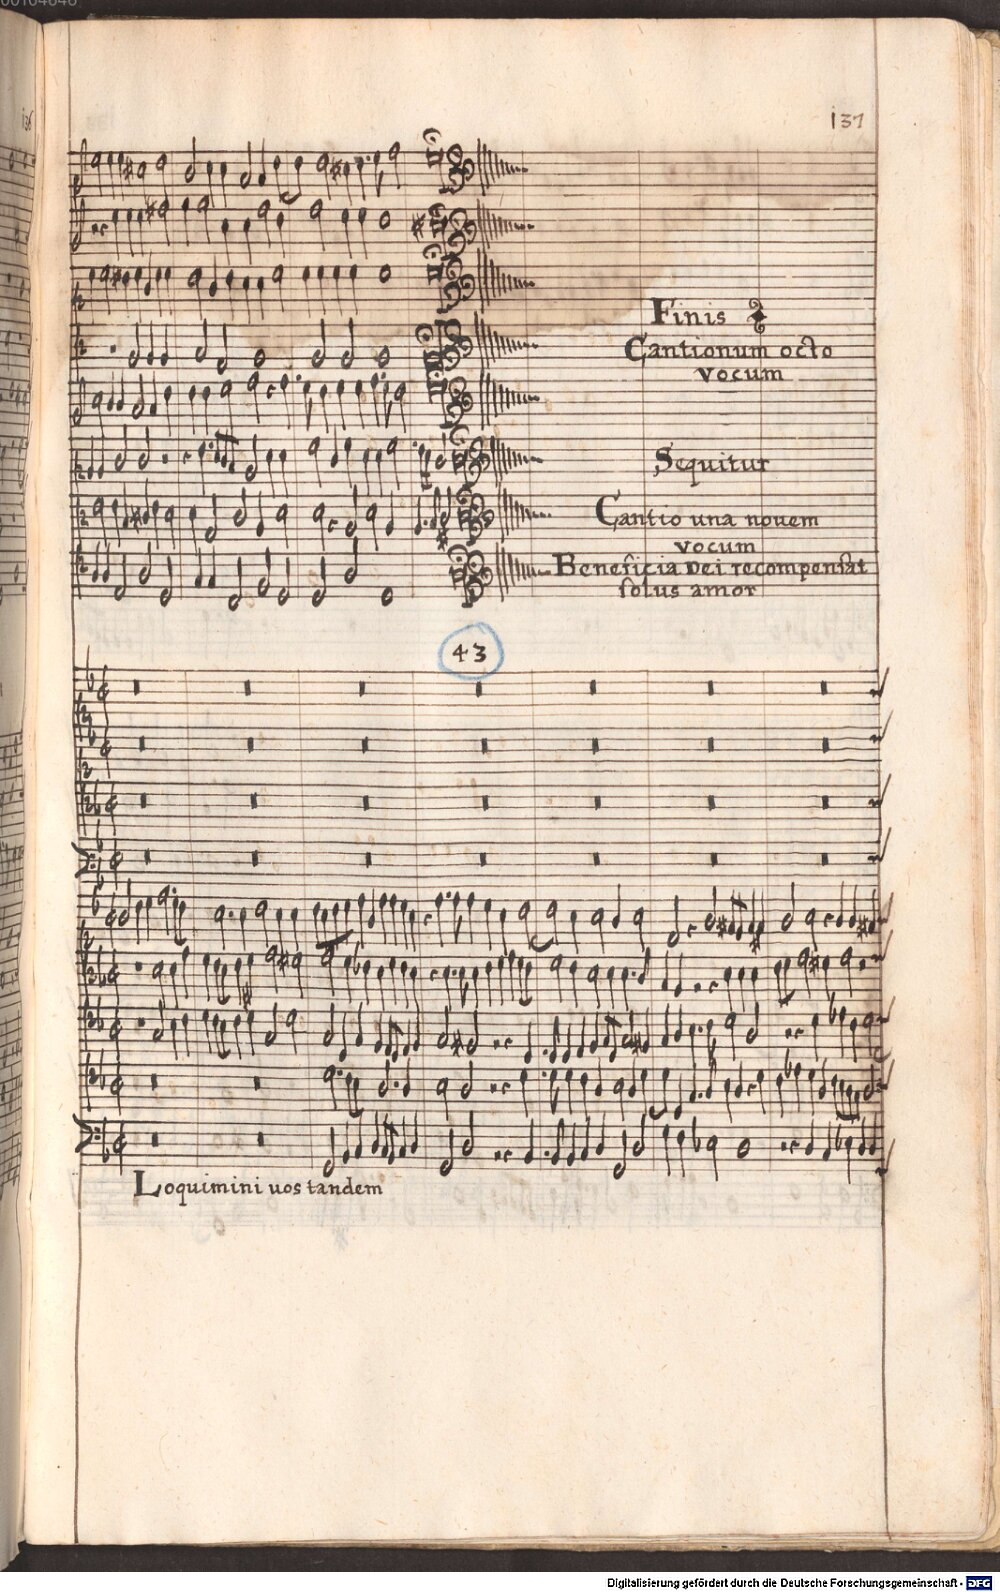 00104646
136
137
Finis
Cantionum octo
vocum
Sequitur
Cantio una nouem
vocum
Beneficia Dei recompensat
solus amor
43
Loquimini uos tandem
Digitalisierung gefördert durch die Deutsche Forschungsgemeinschaft - DFG